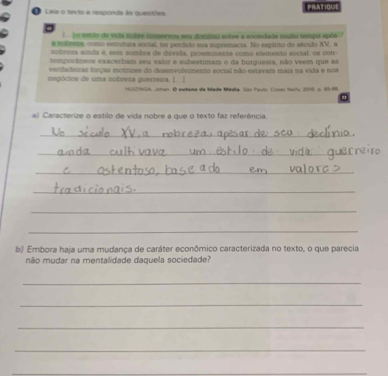 PRATIQUE
1 Leia o texto e responda às questões.
[...] o estilo de vida nobre conservou seu domínio sobre a sociedade muito tempo após
a nobreza, como estrutura social, ter perdido sua supremacia. No espírito do século XV, a
nobreza ainda é, sem sombra de dúvida, proeminente como elemento social; os con-
temporâneos exacerbam seu valor e subestimam o da burguesia, não veem que as
verdadeiras forças motrizes do desenvolvimento social não estavam mais na vida e nos
negócios de uma nobreza guerreira. [...]
HUIZINGA, Johan. O outono da Idade Média. São Paulo: Cosac Naify, 2010. p.
a) Caracterize o estilo de vida nobre a que o texto faz referência.
No século XV, a nobreza, apesar de seu declínio,
ainda cultivava um estilo de vida guerreiro
e ostentoso, baseado em valores
tradicionais.
b) Embora haja uma mudança de caráter econômico caracterizada no texto, o que parecia
não mudar na mentalidade daquela sociedade?